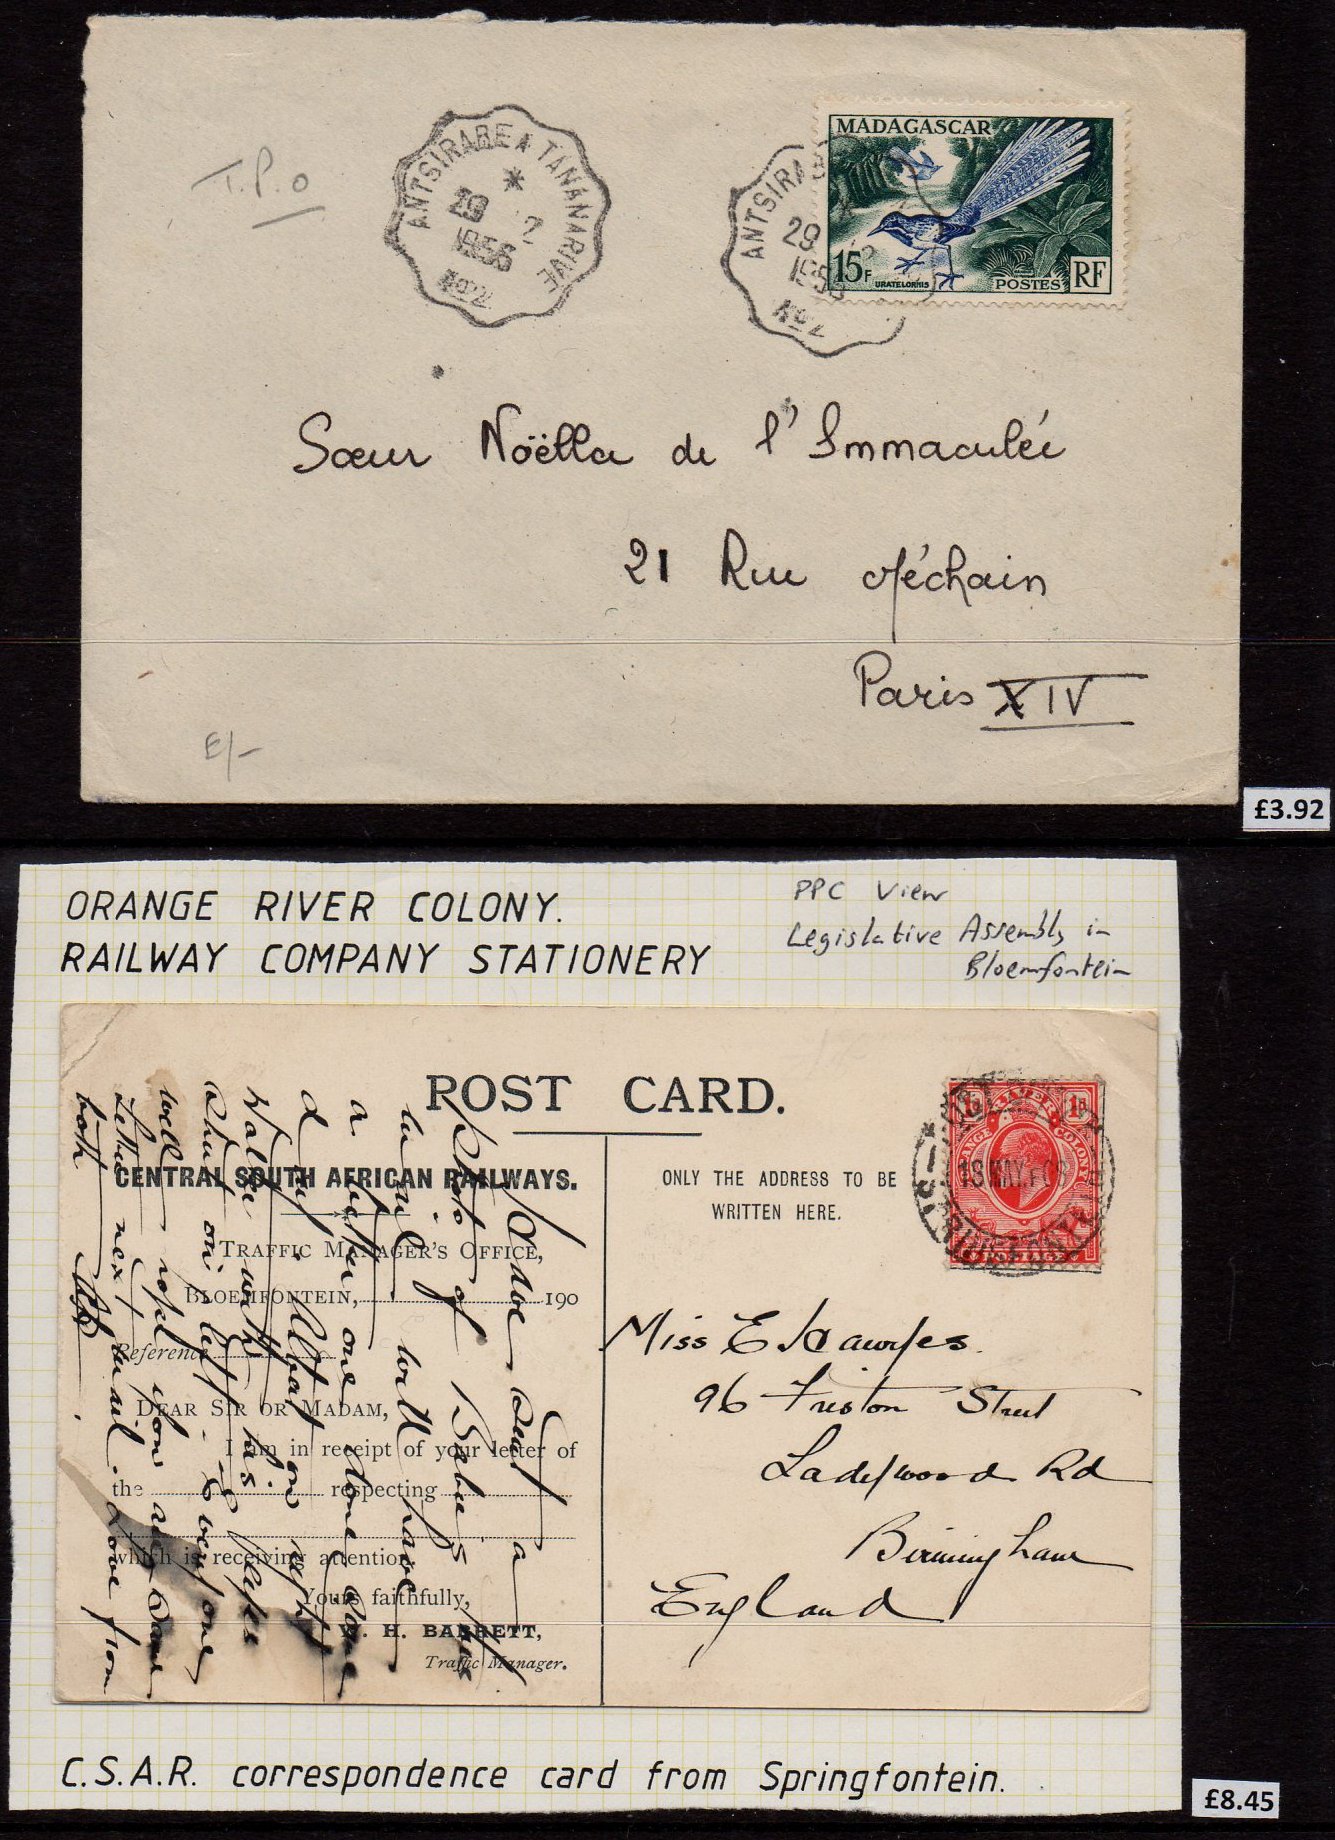 T.P.O
ANTSIRABE A TANANARIVE
29 2
1956
No2
ANTSIRAB
29
195
No2
MADAGASCAR
15F
URATELORNIS
POSTES RF
Sœur Noëlla de l'Immaculée
21 Rue Méchain
Paris XIV
E/-
£3.92
ORANGE RIVER COLONY.
RAILWAY COMPANY STATIONERY
PPC View
Legislative Assembly in
Bloemfontein
POST CARD.
CENTRAL SOUTH AFRICAN RAILWAYS.
TRAFFIC MANAGER'S OFFICE,
BLOEMFONTEIN, 190
Reference
DEAR SIR OR MADAM,
I am in receipt of your letter of
the respecting
which is receiving attention.
Yours faithfully,
W. H. BARRETT,
Traffic Manager.
dear a
Photo of Babies
will have
a letter one done
on right
Walter with his
on left
well hope you are
Letter next mail. Love from
both
ONLY THE ADDRESS TO BE
WRITTEN HERE.
1d 1d
ORANGE RIVER COLONY
18 MAY 08
Miss E Hawkes.
96 Friston Street
Ladywood Rd
Birmingham
England
C.S.A.R. correspondence card from Springfontein.
£8.45